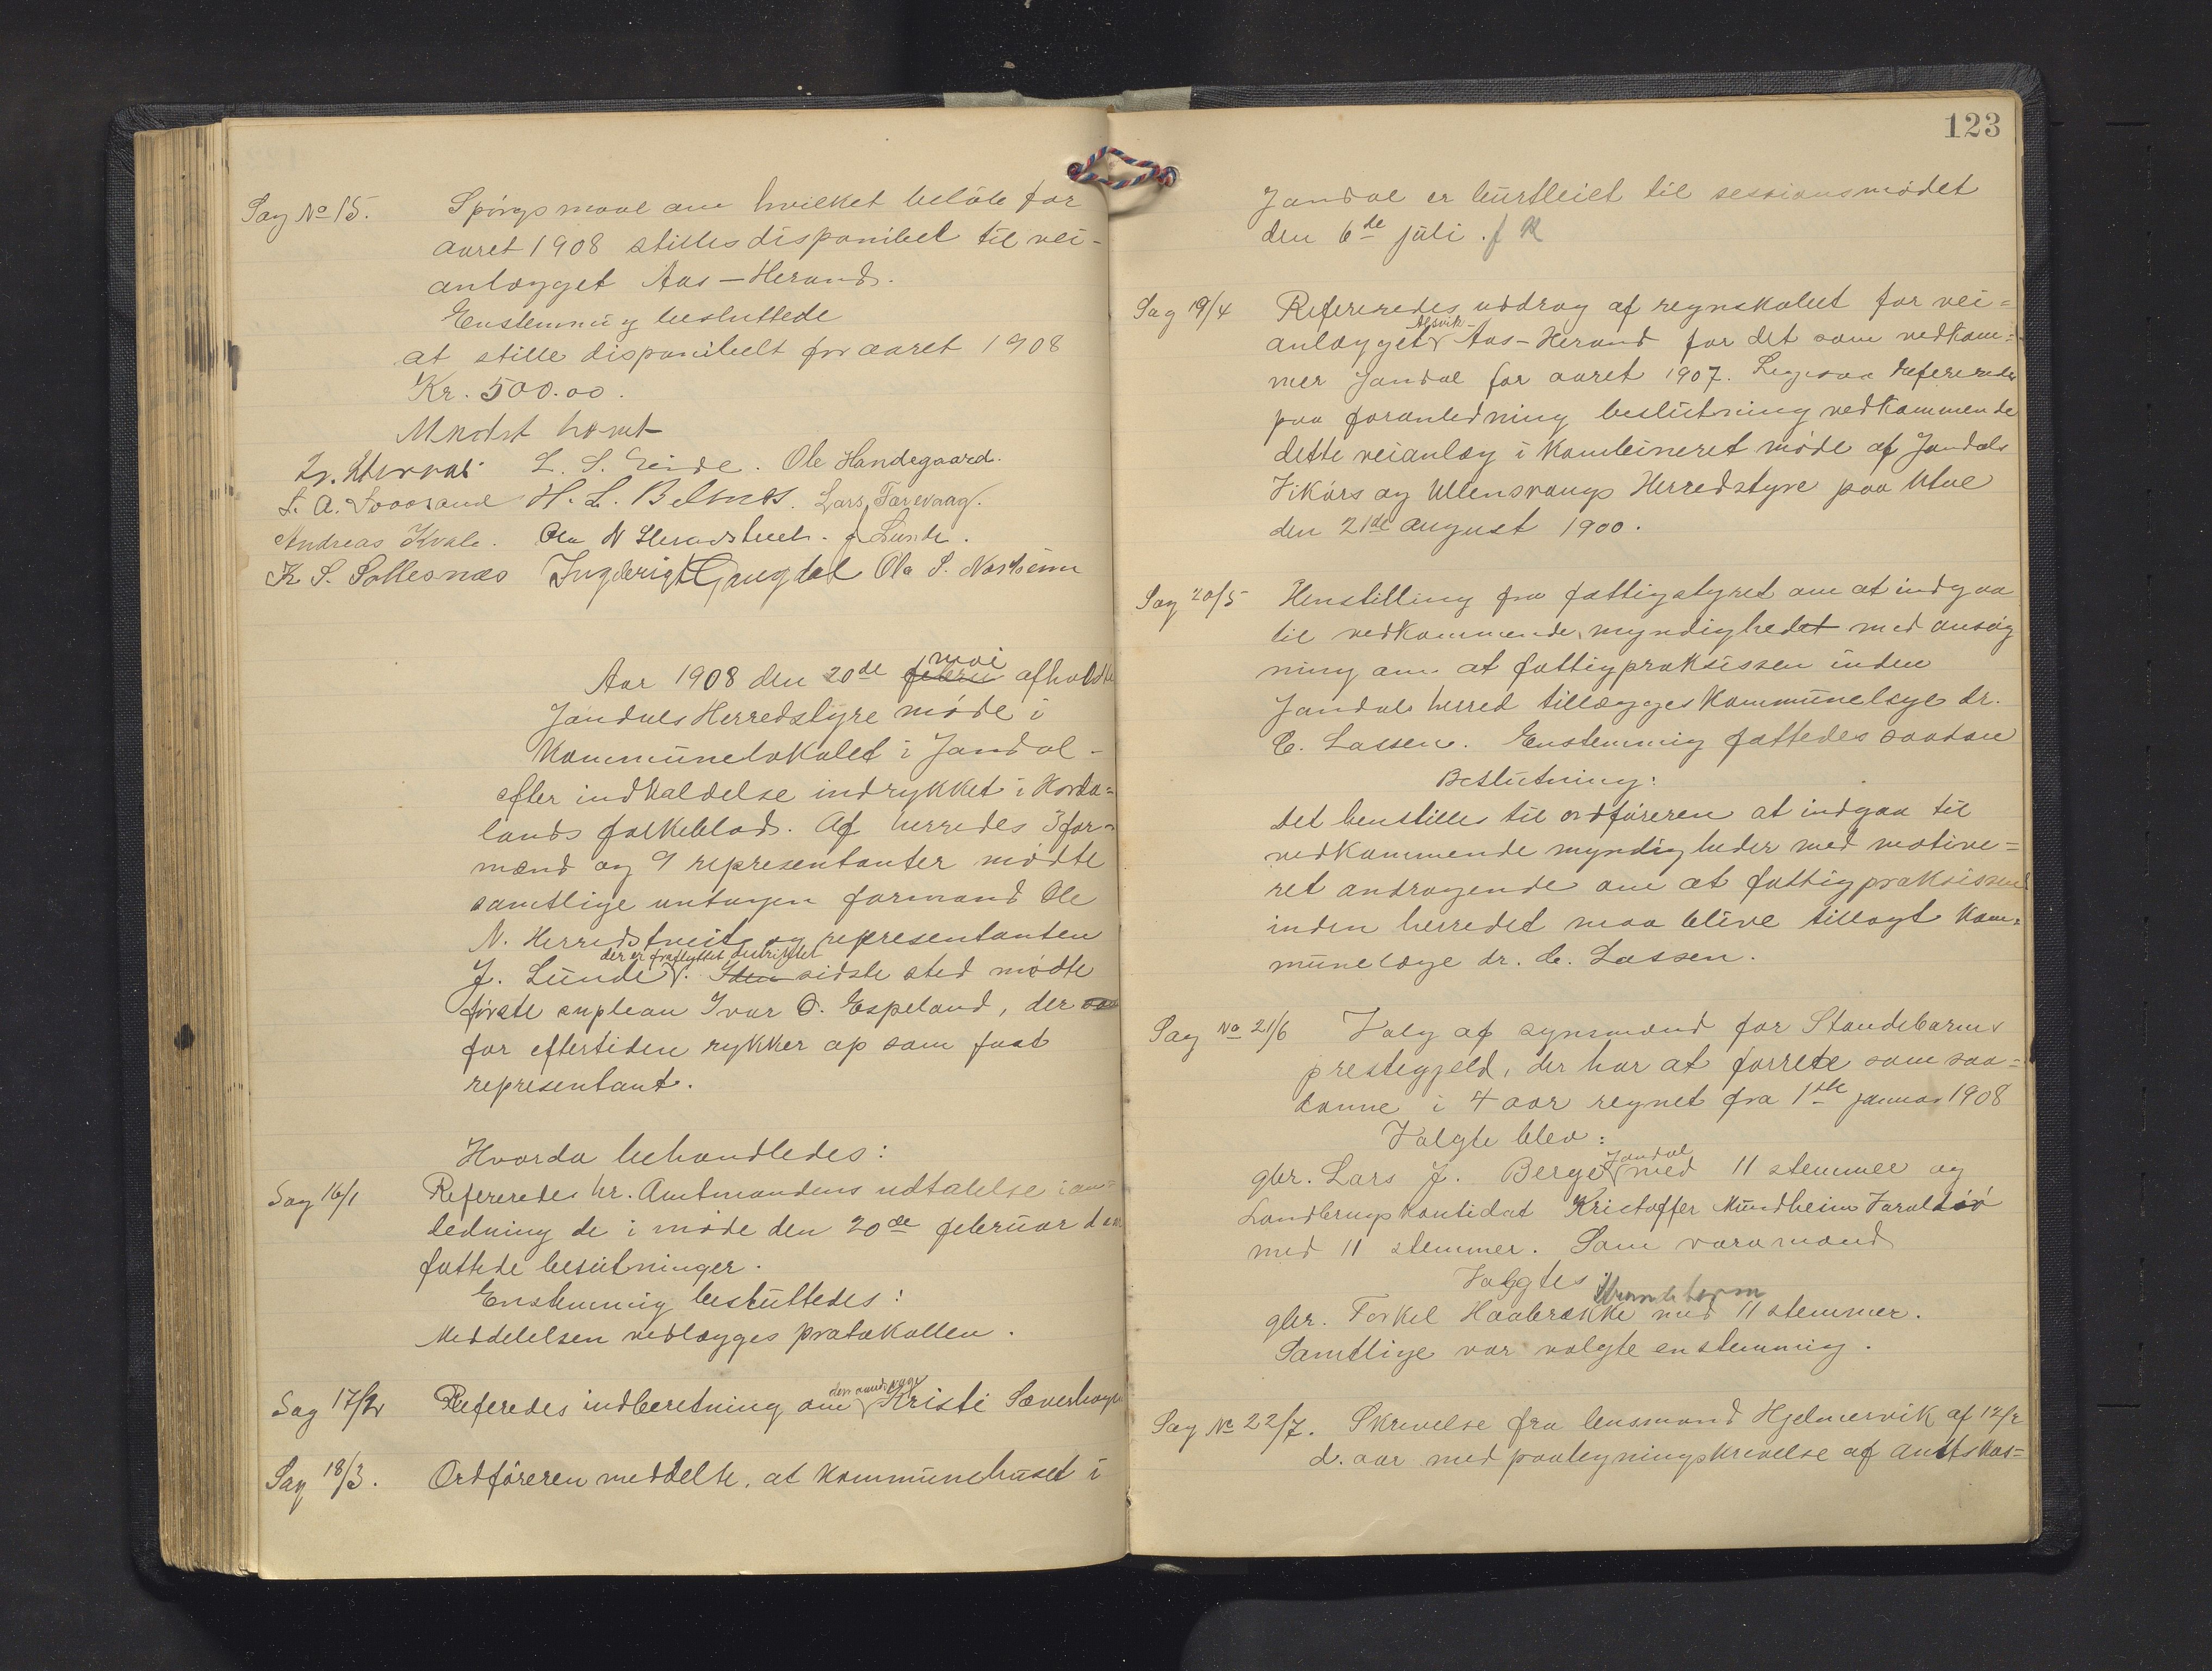 Sag No 15. Spörgsmaal om hvilket belöb for
aaret 1908 stilles disponibel til vei-
anlægget Aas-Herand.
Enstemmig besluttede
at stille disponibelt for aaret 1908
Kr. 500.00.
Mødet hævet
L. S. Eide. Ole Handegaard.
H. L. Belsnes. Lars Torevaag.
Andreas Kvale. Ola N Herredstveit. J Lunde.
K S. Sollesnæs Ingebrigt Gaugdal Ola S. Næsheim
Aar 1908 den 20de febru mai afholdte
Jondals Herredstyre möde i
Kommunelokalet i Jondal
efter indkaldelse indrykket i Horda=
lands folkeblad. Af herredes 3 for-
mænd og 9 representanter mødte
samtlige untagen formand Ole
N. Herredstveit og representanten
J. Lunde der er fraflyttet distriktet. I den sidste sted mødte
første suplean Ivar O. Espeland, der
for eftertiden rykker op som fast
representant.
Hvorda behandledes:
Sag 16/1 Refereredes hr. Amtmandens udtalelse i an=
ledning de i möde den 20de februar d aar
fattede beslutninger.
Enstemmig besluttedes:
Meddelelsen vedlægges protokollen.
Sag 17/2 Referedes indberetning om den aandssvage Kristi Sæverhagen
Sag 18/3. Ordföreren meddelte, at kommunehuset i
123
Jondal er burtleiet til sessionsmödet
den 6te juli.
Sag 19/4 Refereredes uddrag af regnskabet for vei=
anlægget Alsvik- Aas-Herand for det som vedkom=
mer Jondal for aaret 1907. Ligesaa refereredes
paa foranledning beslutning vedkommende
dette veianlæg i kombineret möde af Jondals
Vikörs og Ullensvangs Herredstyre paa Utne
den 21de august 1900.
Sag 20/5 Henstilling fra fattigstyret om at indgaa
til vedkommende myndighedet med ansög
ning om at fattigpraksissen inden
Jondals herred tillægges Kommunelæge dr.
C. Lassen. Enstemmig fattedes saadan
Beslutning:
Det henstilles til ordföreren at indgaa til
vedkommende myndigheder med motive=
ret andragende om at fattigpraksissen
inden herredet maa blive tillagt Kom=
munelæge dr. C. Lassen.
Sag No 21/6 Valg af synsmænd for Strandebarms
prestegjeld, der har at forrete som saa=
danne i 4 aar regnet fra 1ste januar 1908
Valgte blev:
gbr. Lars J. Berge Jondal med 11 stemmer og
Landbrugskantidat Kristoffer Mundheim Varaldsö
med 11 stemmer. Som varamænd
Valgtes:
gbr. Torkel Haabrække Strandebarm med 11 stemmer.
Samtlige var valgte enstemmig.
Sag No 22/7. Skrivelse fra lensmand Hjelmervik af 12/2
d. aar med paategningskrivelse af Amtskas=